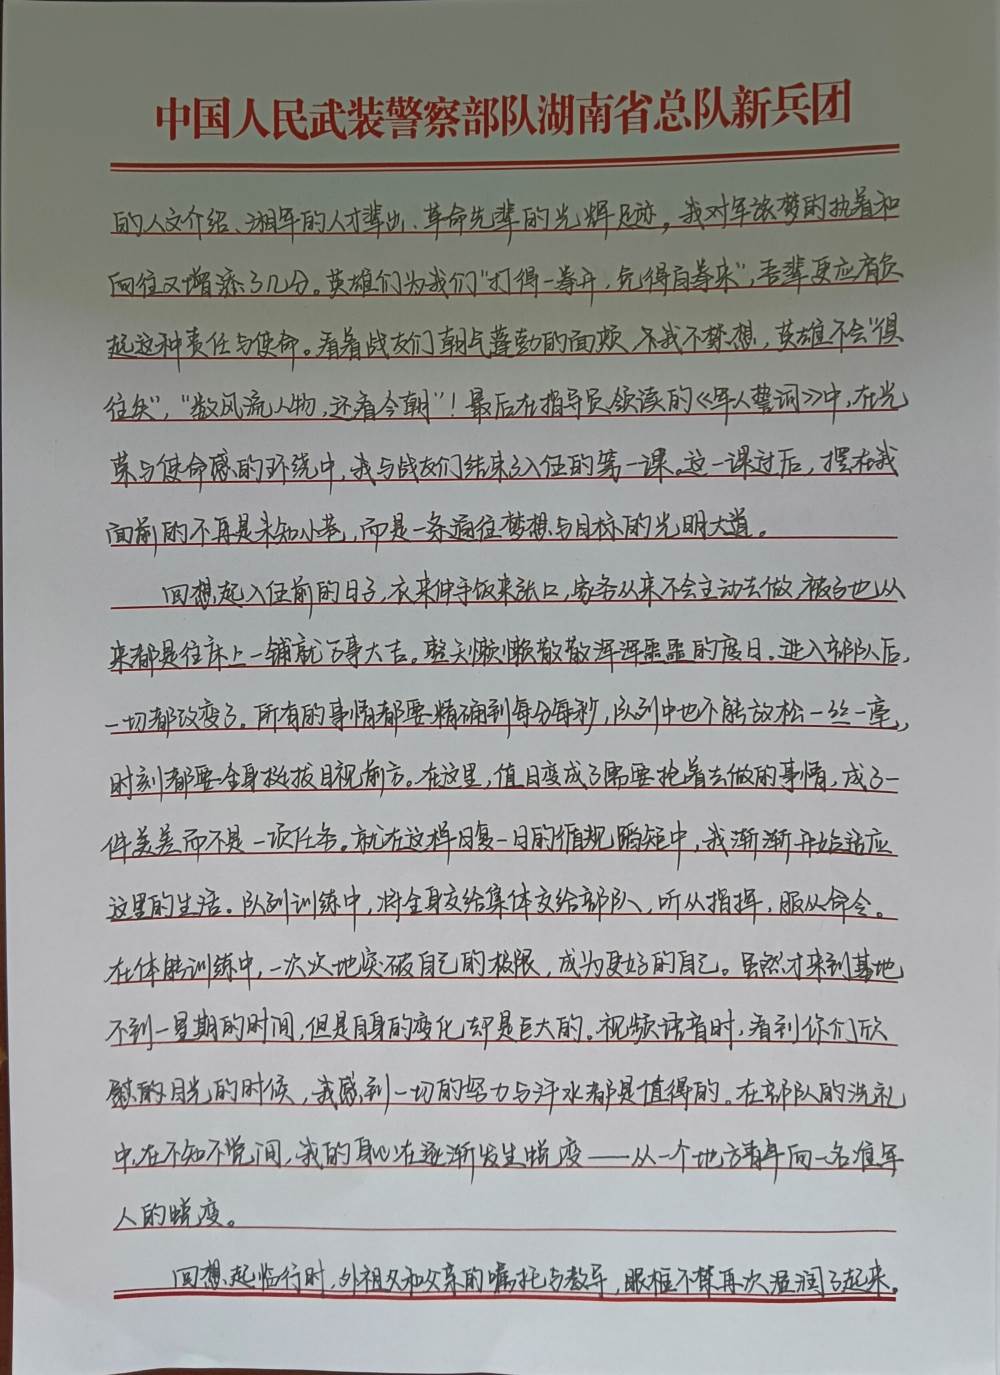 中国人民武装警察部队湖南省总队新兵团
的人文介绍、湘军的人才辈出、革命先辈的光辉足迹，我对军旅梦的执着和
向往又增添了几分。英雄们为我们“打得一拳开，免得百拳来”，吾辈更应肩负
起这种责任与使命。看着战友们朝气蓬勃的面颊，不我不禁想，英雄不会“俱
往矣”，“数风流人物，还看今朝”！最后在指导员领读的《军人誓词》中，在光
荣与使命感的环绕中，我与战友们结束了入伍的第一课。这一课过后，摆在我
面前的不再是未知小巷，而是一条通往梦想与目标的光明大道。
回想起入伍前的日子，衣来伸手饭来张口，家务从来不会主动去做，被子也从
来都是往床上一铺就万事大吉。整天懒懒散散浑浑噩噩的度日。进入部队后，
一切都改变了。所有的事情都要精确到每分每秒，队列中也不能放松一丝一毫，
时刻都要全身挺拔目视前方。在这里，值日变成了需要抢着去做的事情，成了一
件美差而不是一项任务。就在这样日复一日的循规蹈矩中，我渐渐开始适应
这里的生活。队列训练中，将全身交给集体交给部队，听从指挥，服从命令。
在体能训练中，一次次地突破自己的极限，成为更好的自己。虽然才来到基地
不到一星期的时间，但是自身的变化却是巨大的。视频语音时，看到你们欣
慰的目光的时候，我感到一切的努力与汗水都是值得的。在部队的洗礼
中，在不知不觉间，我的身心在逐渐发生蜕变——从一个地方青年向一名准军
人的蜕变。
回想起临行时，外祖父和父亲的嘱托与教导，眼眶不禁再次湿润了起来。